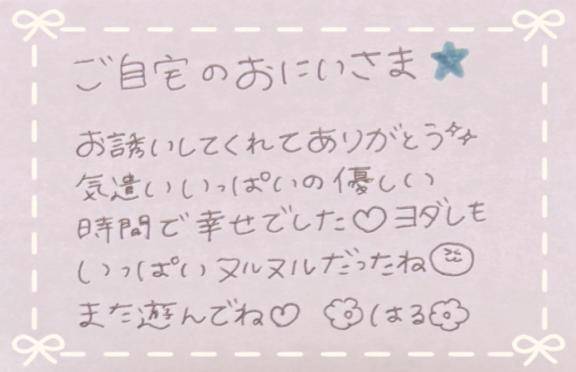 ご自宅のおにいさま★
お誘いしてくれてありがとう✨
気遣いいっぱいの優しい
時間で幸せでした♡ヨダレも
いっぱいヌルヌルだったね
また遊んでね♡ はる